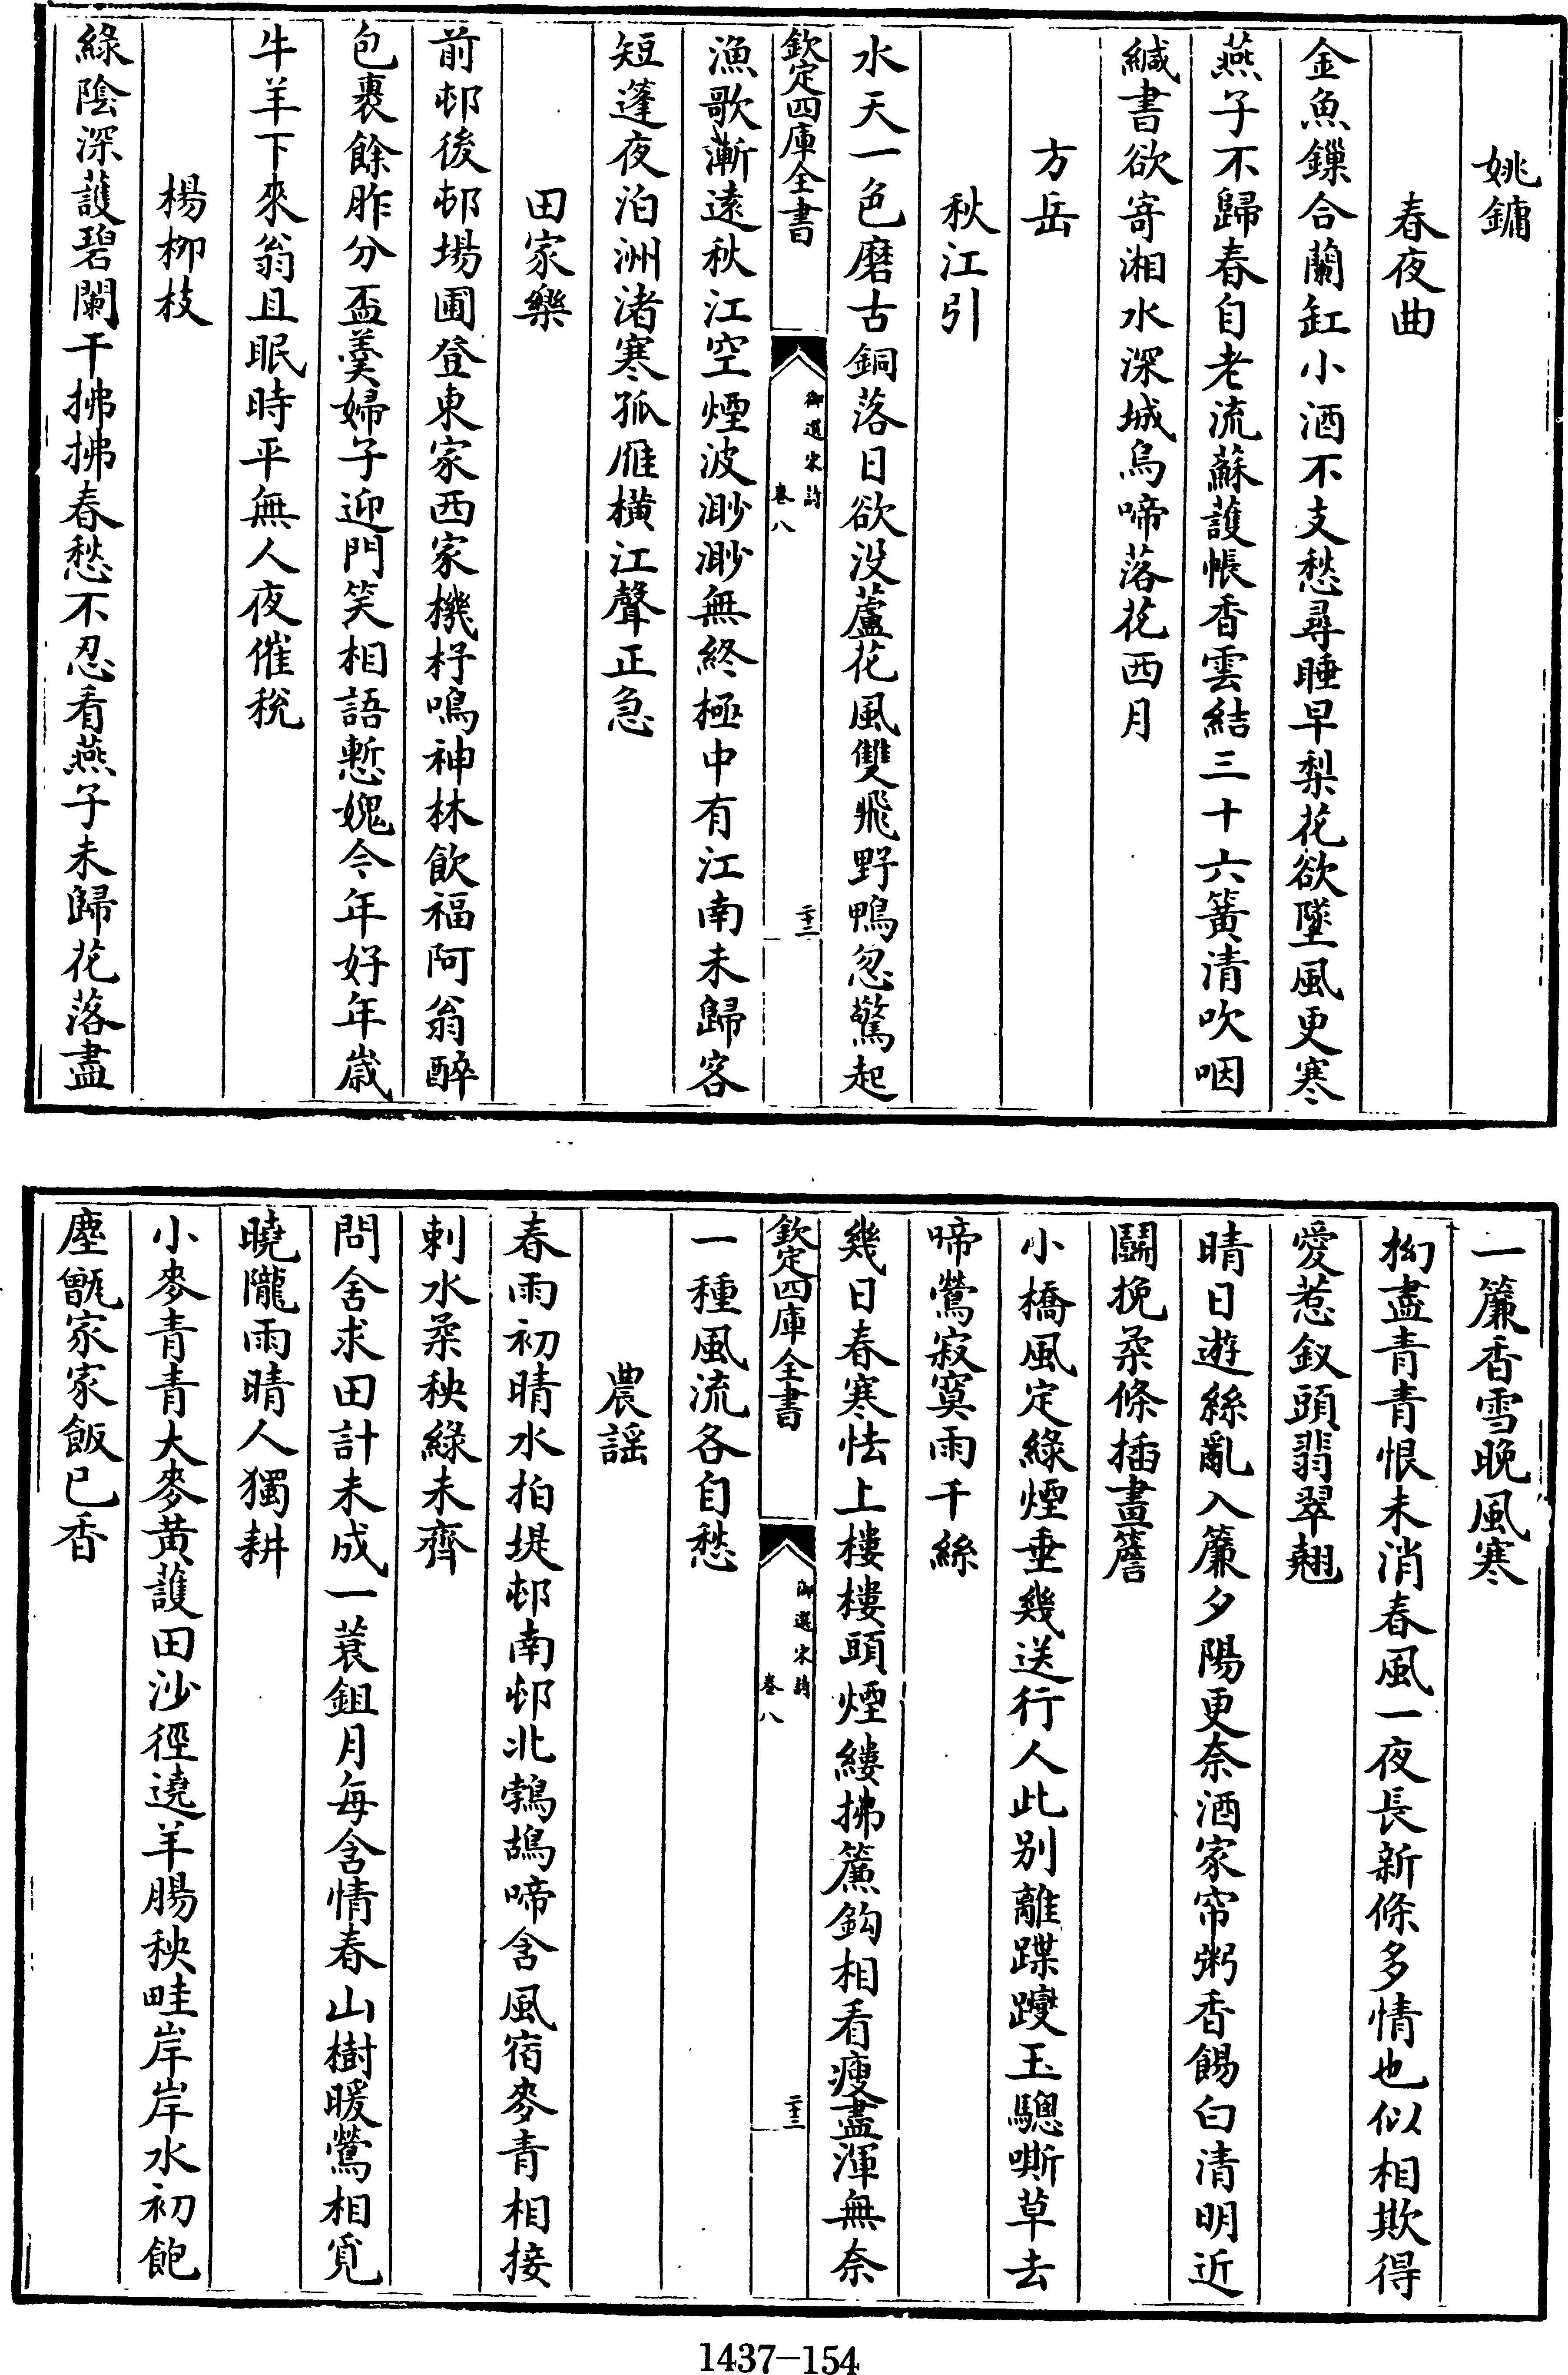 姚鏞
春夜曲
金魚鏁合蘭缸小酒不支愁尋睡早梨花欲墜風更寒
燕子不歸春自老流蘇護帳香雲結三十六簧清吹咽
緘書欲寄湘水深城烏啼落花西月
方岳
秋江引
水天一色磨古銅落日欲没蘆花風雙飛野鴨忽驚起
欽定四庫全書
御選宋詩
卷八
二十三
漁歌漸遠秋江空煙波渺渺無終極中有江南未歸客
短蓬夜泊洲渚寒孤雁橫江聲正急
田家樂
前邨後邨場圃登東家西家機杼鳴神林飲福阿翁醉
包裹餘胙分盃羹婦子迎門笑相語慙媿今年好年歲
牛羊下來翁且眠時平無人夜催稅
楊柳枝
綠陰深護碧闌干拂拂春愁不忍看燕子未歸花落盡
一簾香雪晚風寒
拗盡青青恨未消春風一夜長新條多情也似相欺得
愛惹釵頭翡翠翹
晴日遊絲亂入簾夕陽更奈酒家帘粥香餳白清明近
鬭挽柔條插畫簷
小橋風定綠煙垂幾送行人此別離蹀躞玉驄嘶草去
啼鶯寂寞雨千絲
幾日春寒怯上樓樓頭煙縷拂簾鈎相看瘦盡渾無奈
欽定四庫全書
御選宋詩
卷八
二十三
一種風流各自愁
農謡
春雨初晴水拍堤邨南邨北鵓鴣啼含風宿麥青相接
刺水柔秧綠未齊
問舍求田計未成一蓑鉏月每含情春山樹暖鶯相覓
曉隴雨晴人獨耕
小麥青青大麥黃護田沙徑遶羊腸秧畦岸岸水初飽
塵甑家家飯已香
1437-154